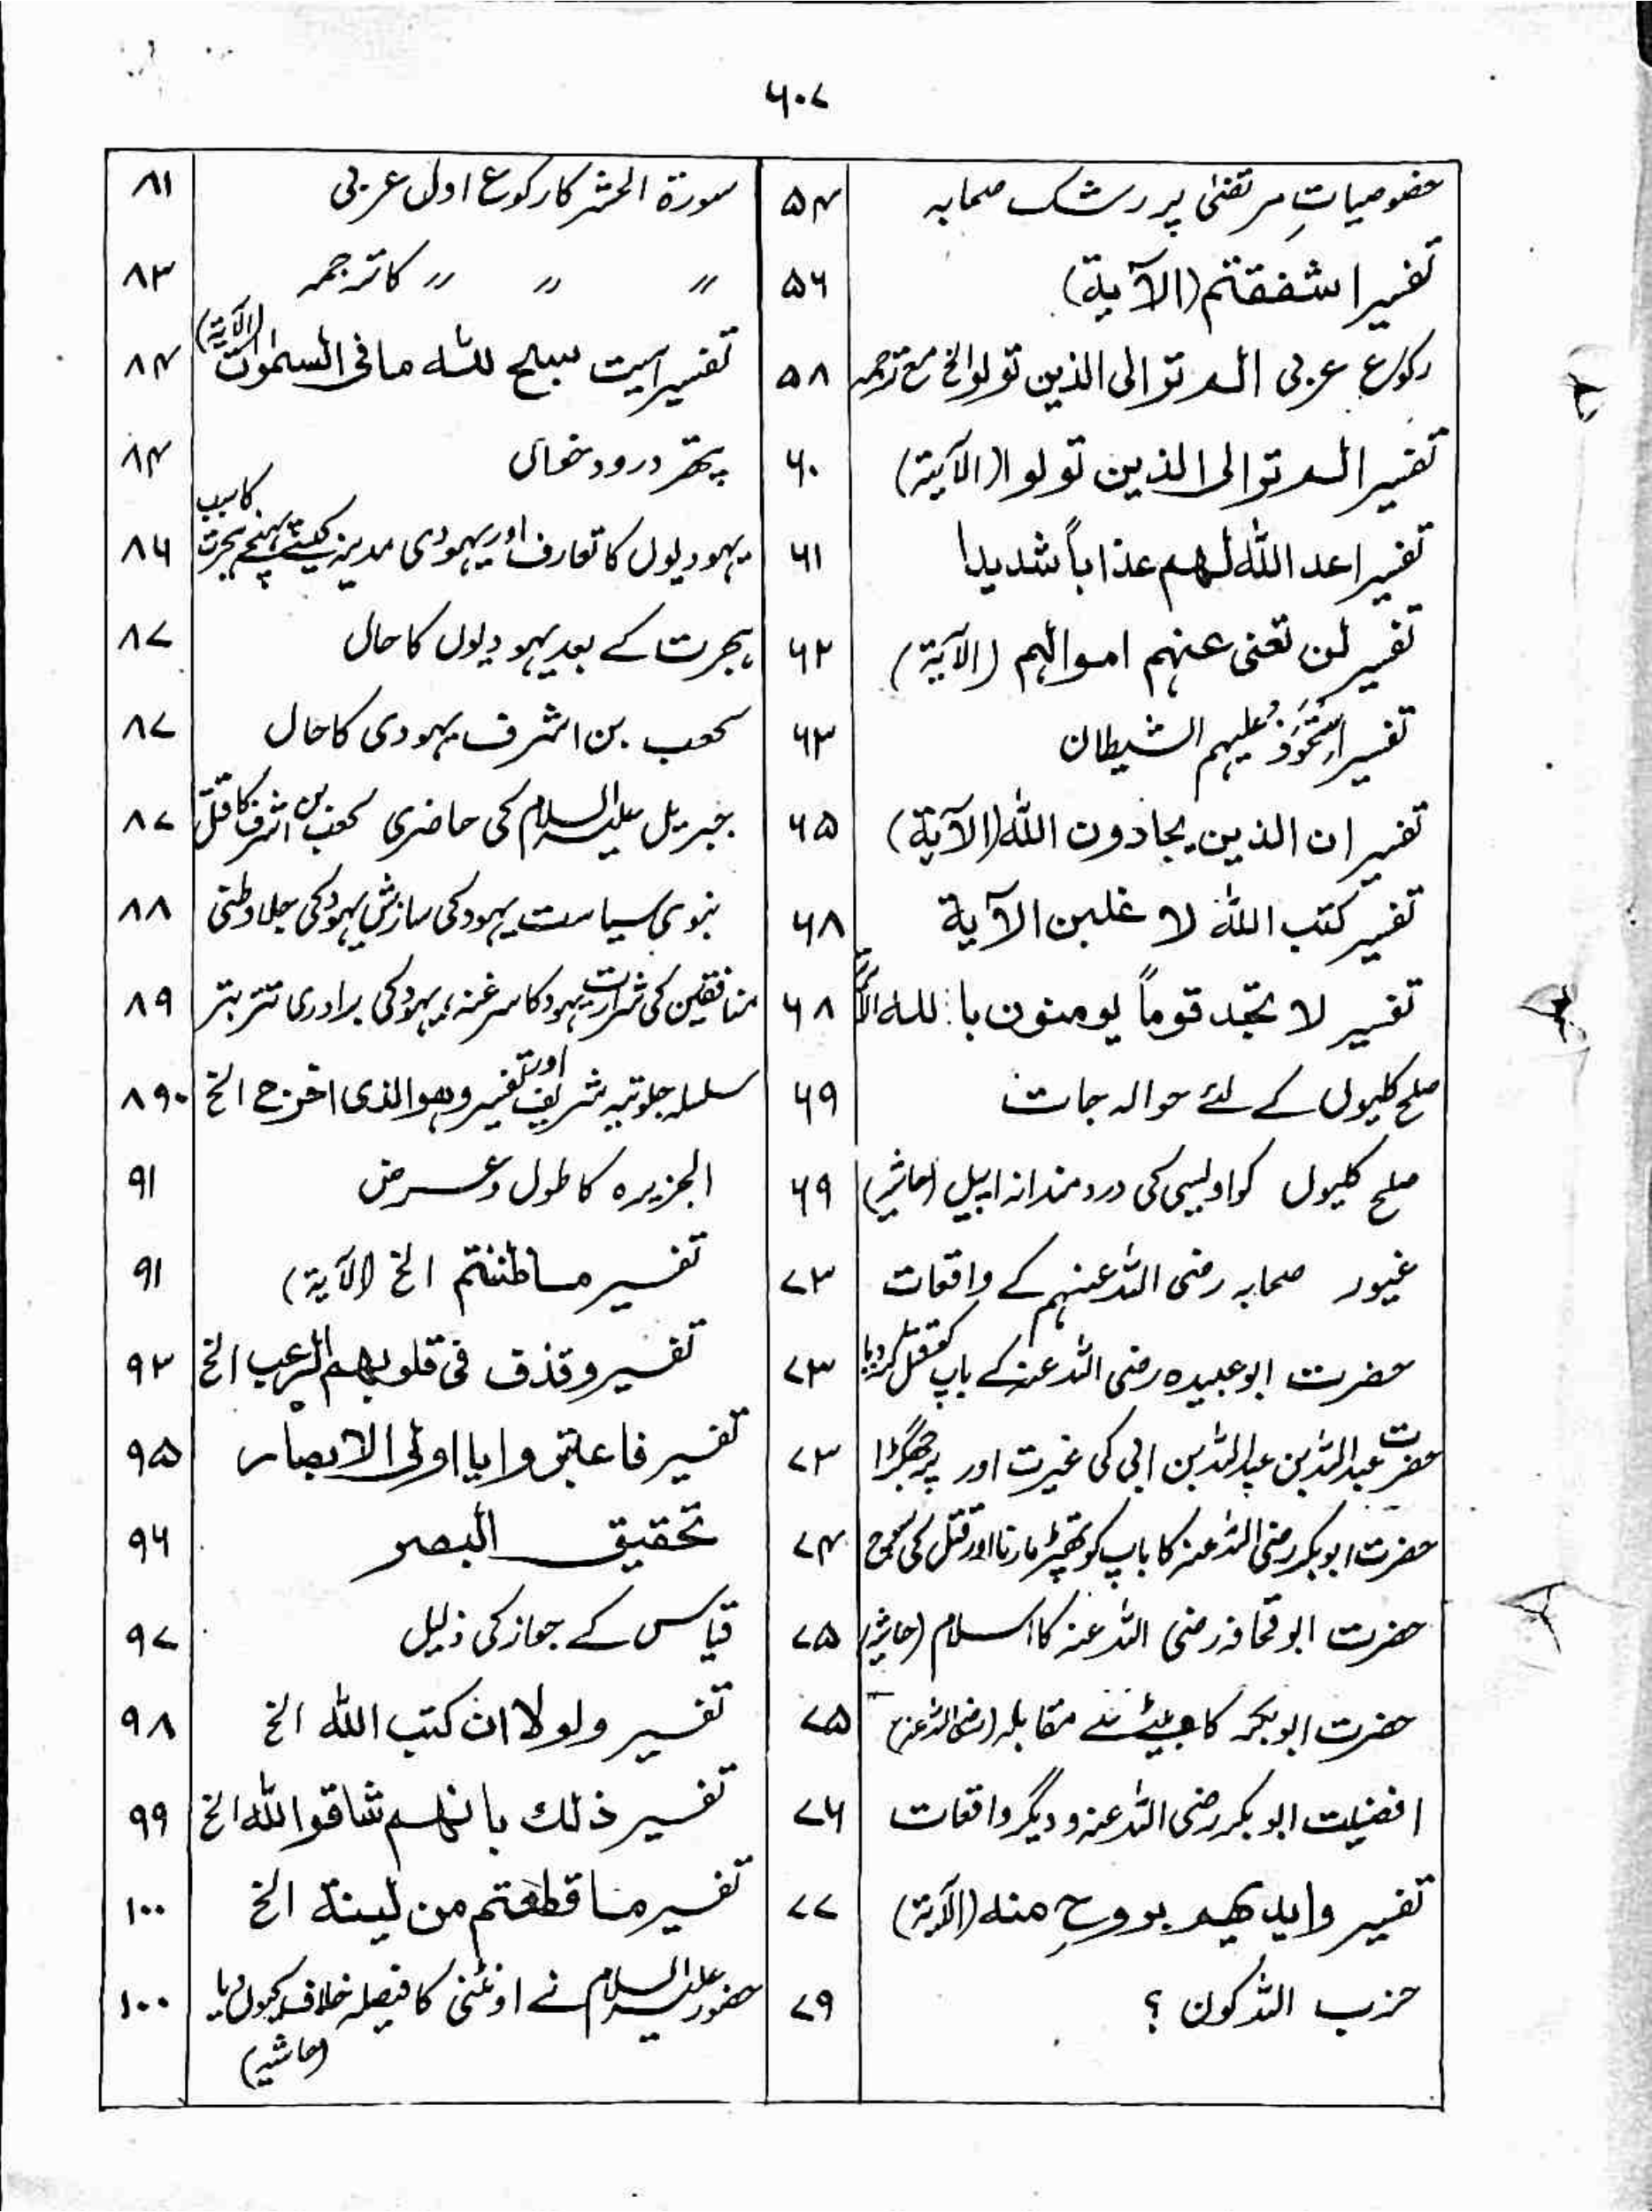 ۶۰۷
خصوصیاتِ مرتضٰی پر رشک صحابہ ۵۴
تفسیر اشفقتم (الآیۃ) ۵۶
رکوع عربی الم تر الی الذین تولوا الخ مع ترجمہ ۵۸
تفسیر الم تر الی الذین تولوا (الآیۃ) ۶۰
تفسیر اعد اللہ لہم عذاباً شدیدا ۶۱
تفسیر لن تغنی عنہم اموالہم (الآیۃ) ۶۲
تفسیر استحوذ علیہم الشیطان ۶۳
تفسیر ان الذین یحادون اللہ (الآیۃ) ۶۵
تفسیر کتب اللہ لا غلبن الآیۃ ۶۸
تفسیر لا تجد قوماً یومنون باللہ الآیۃ ۶۸
صلح کلیوں کے لئے حوالہ جات ۶۹
صلح کلیوں کو اویسی کی دردمندانہ اپیل (حاشیہ) ۶۹
غیور صحابہ رضی اللہ عنہم کے واقعات ۷۳
حضرت ابو عبیدہ رضی اللہ عنہ کے باپ کو قتل کر دیا ۷۳
حضرت عبداللہ بن عبداللہ بن ابی کی غیرت اور پر جھگڑا ۷۳
حضرت ابوبکر رضی اللہ عنہ کا باپ کو تھپڑ مارنا اور قتل کی ۷۴
حضرت ابو قحافہ رضی اللہ عنہ کا اسلام (حاشیہ) ۷۵
حضرت ابوبکر کا بیٹے سے مقابلہ (رضی اللہ عنہ) ۷۵
افضلیت ابوبکر رضی اللہ عنہ و دیگر واقعات ۷۶
تفسیر وایدیھم بروحِ منہ (الآیۃ) ۷۷
حزب اللہ کون ؟ ۷۹
سورۃ الحشر کا رکوع اول عربی ۸۱
〃 〃 〃 کا ترجمہ ۸۳
تفسیر آیت سبح للہ ما فی السمٰوٰت (الآیۃ) ۸۴
پتھر درود خواں ۸۴
یہودیوں کا تعارف اور یہودی مدینہ کیسے پہنچے ہجرت کا سبب ۸۶
ہجرت کے بعد یہودیوں کا حال ۸۷
کعب بن اشرف یہودی کا حال ۸۷
جبریل علیہ السلام کی حاضری کعب بن اشرف کا قتل ۸۷
نبوی سیاست یہود کی سازش یہود کی جلاوطنی ۸۸
منافقین کی شرارت یہود کا سرغنہ، یہود کی برادری تتر بتر ۸۹
سلسلہ جلوتیہ شریف اور تفسیر وھو الذی اخرج الخ ۸۹۰
الجزیرہ کا طول و عرض ۹۱
تفسیر ما ظننتم الخ (الآیۃ) ۹۱
تفسیر و قذف فی قلوبہم الرعب الخ ۹۳
تفسیر فاعتبروا یا اولی الابصار ۹۵
تحقیق البصر ۹۶
قیاس کے جواز کی دلیل ۹۷
تفسیر ولولا ان کتب اللہ الخ ۹۸
تفسیر ذلک بانہم شاقوا اللہ الخ ۹۹
تفسیر ما قطعتم من لینۃ الخ ۱۰۰
حضور علیہ السلام نے اونٹنی کا فیصلہ خلاف کیوں دیا (حاشیہ) ۱۰۰